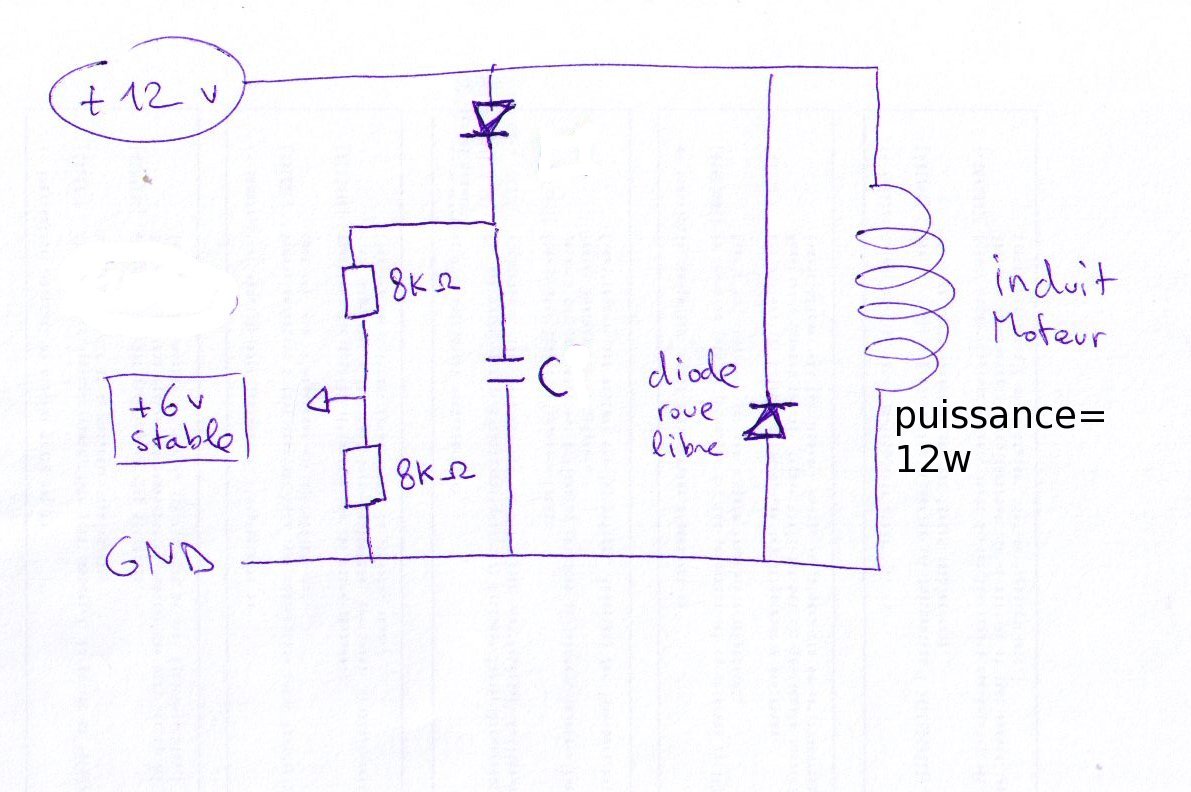 +12 v
8KΩ
+6v
stable
8KΩ
C
diode
roue
libre
induit
Moteur
puissance=
12w
GND